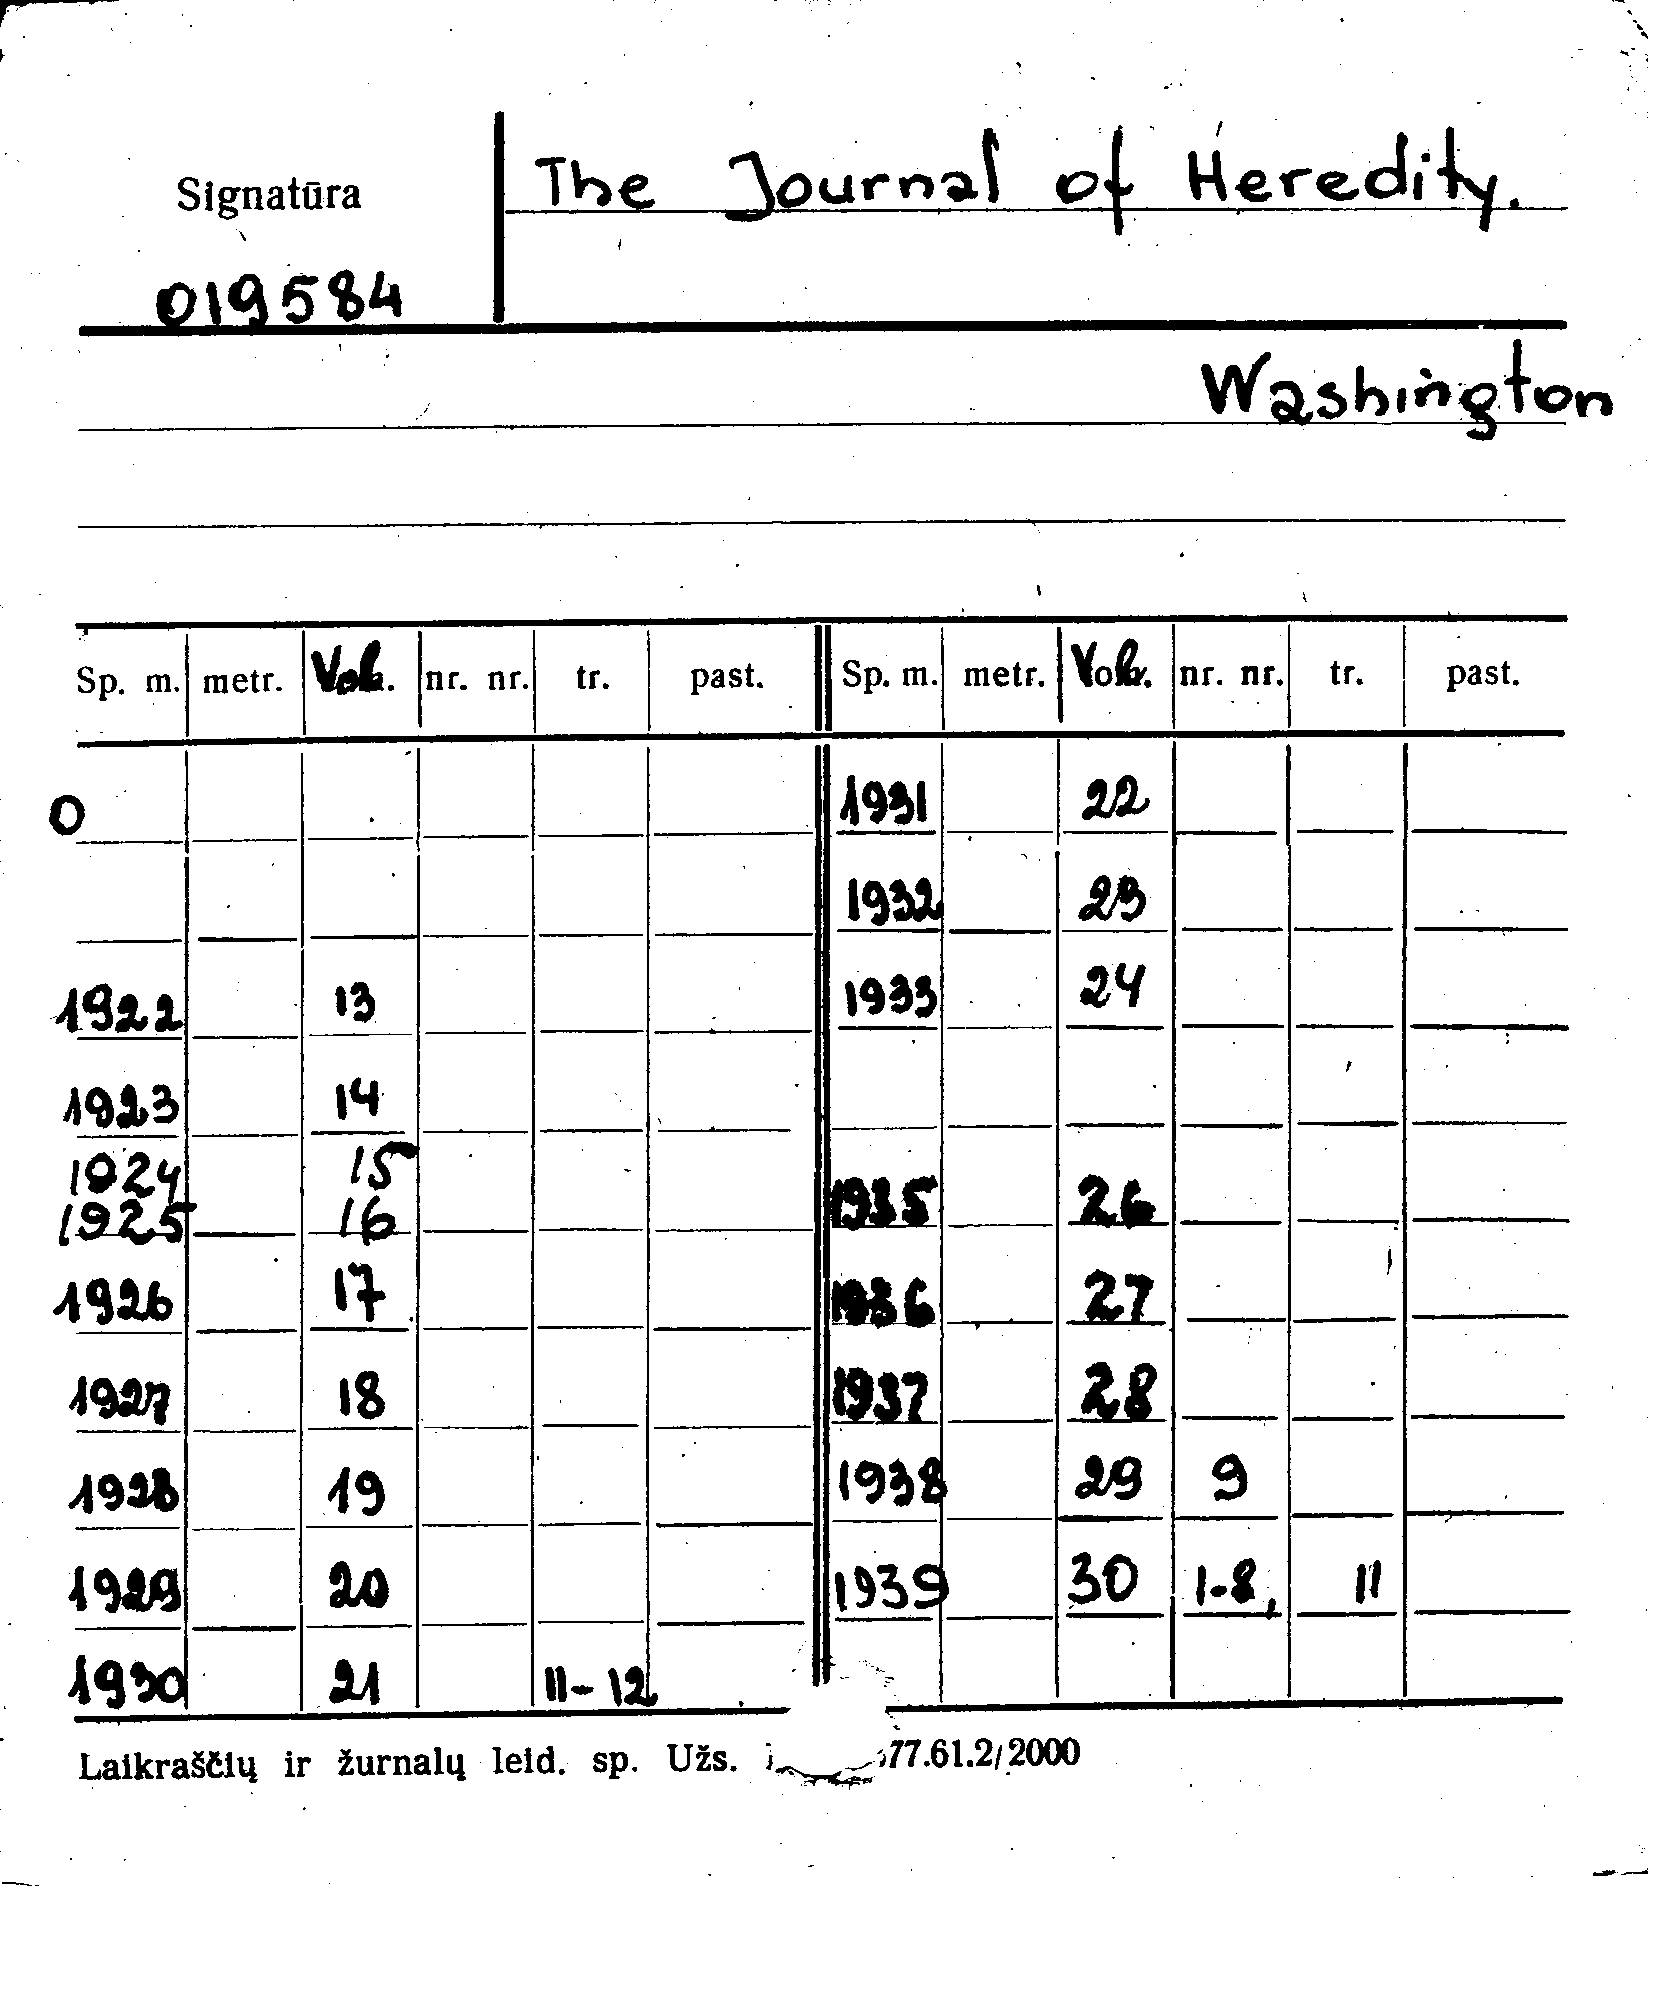 Signatūra
The Journal of Heredity.
019584
Washington
Sp. m. metr. Vol. nr. nr. tr. past. Sp. m. metr. Vol. nr. nr. tr. past.
0 1931 22
1932 23
1922 13 1933 24
1923 14
1924 15
1925 16 1935 26
1926 17 1936 27
1927 18 1937 28
1928 19 1938 29 9
1929 20 1939 30 1-8, 11
1930 21 11-12
Laikraščių ir žurnalų leid. sp. Užs. 77.61.2/2000